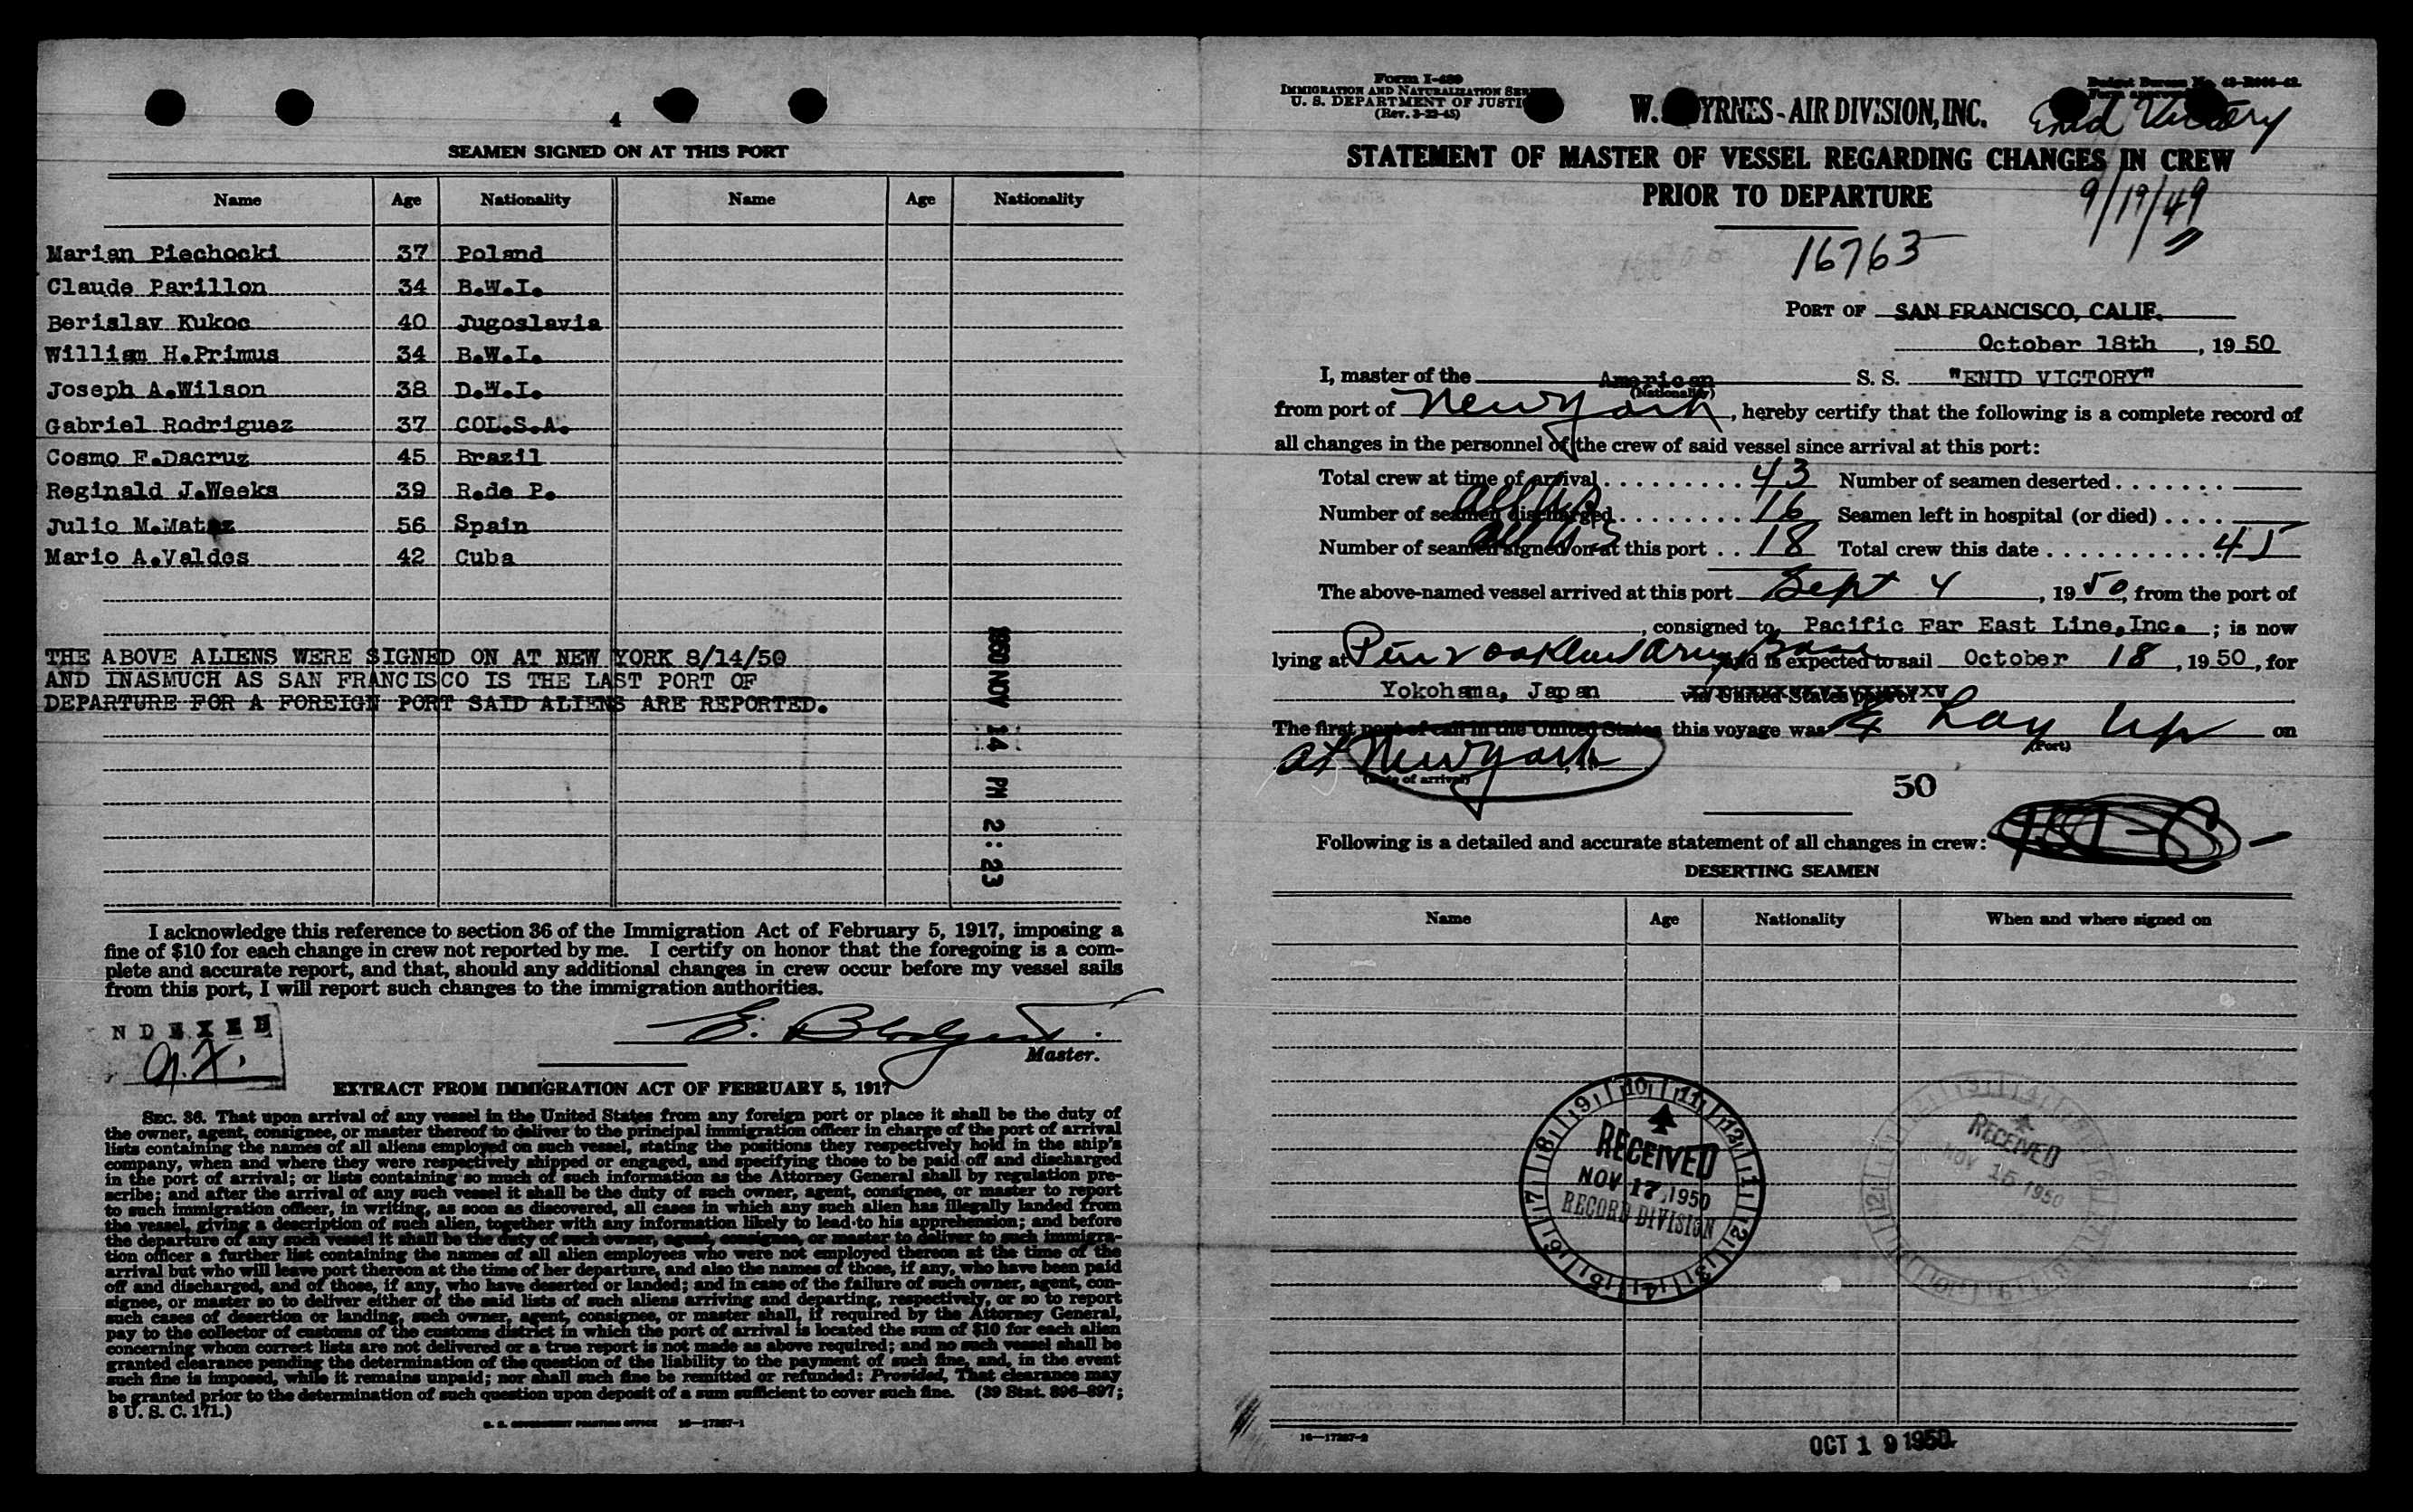 4
SEAMEN SIGNED ON AT THIS PORT
Name Age Nationality Name Age Nationality
Marian Piechocki 37 Poland
Claude Parillon 34 B.W.I.
Berislav Kukoc 40 Jugoslavia
William H.Primus 34 B.W.I.
Joseph A.Wilson 38 D.W.I.
Gabriel Rodriguez 37 COL.S.A.
Cosmo F.Dacruz 45 Brazil
Reginald J.Weeks 39 R.de P.
Julio M. 56 Spain
Mario A.Valdes 42 Cuba
THE ABOVE ALIENS WERE SIGNED ON AT NEW YORK 8/14/50
AND INASMUCH AS SAN FRANCISCO IS THE LAST PORT OF
DEPARTURE FOR A FOREIGN PORT SAID ALIENS ARE REPORTED.
1950 NOV 14 PM 2:23
I acknowledge this reference to section 36 of the Immigration Act of February 5, 1917, imposing a
fine of $10 for each change in crew not reported by me. I certify on honor that the foregoing is a com-
plete and accurate report, and that, should any additional changes in crew occur before my vessel sails
from this port, I will report such changes to the immigration authorities.
NDEXED
E.
Master.
EXTRACT FROM IMMIGRATION ACT OF FEBRUARY 5, 1917
SEC. 36. That upon arrival of any vessel in the United States from any foreign port or place it shall be the duty of
the owner, agent, consignee, or master thereof to deliver to the principal immigration officer in charge of the port of arrival
lists containing the names of all aliens employed on such vessel, stating the positions they respectively hold in the ship's
company, when and where they were respectively shipped or engaged, and specifying those to be paid off and discharged
in the port of arrival; or lists containing so much of such information as the Attorney General shall by regulation pre-
scribe; and after the arrival of any such vessel it shall be the duty of such owner, agent, consignee, or master to report
to such immigration officer, in writing, as soon as discovered, all cases in which any such alien has illegally landed from
the vessel, giving a description of such alien, together with any information likely to lead to his apprehension; and before
the departure of any such vessel it shall be the duty of such owner, agent, consignee, or master to deliver to such immigra-
tion officer a further list containing the names of all alien employees who were not employed thereon at the time of the
arrival but who will leave port thereon at the time of her departure, and also the names of those, if any, who have been paid
off and discharged, and of those, if any, who have deserted or landed; and in case of the failure of such owner, agent, con-
signee, or master so to deliver either of the said lists of such aliens arriving and departing, respectively, or so to report
such cases of desertion or landing, such owner, agent, consignee, or master shall, if required by the Attorney General,
pay to the collector of customs of the customs district in which the port of arrival is located the sum of $10 for each alien
concerning whom correct lists are not delivered or a true report is not made as above required; and no such vessel shall be
granted clearance pending the determination of the question of the liability to the payment of such fine, and, in the event
such fine is imposed, while it remains unpaid; nor shall such fine be remitted or refunded: Provided, That clearance may
be granted prior to the determination of such question upon deposit of a sum sufficient to cover such fine. (39 Stat. 896-897;
8 U. S. C. 171.)
U. S. GOVERNMENT PRINTING OFFICE 16—17287-1
Form I-489
IMMIGRATION AND NATURALIZATION SER
U. S. DEPARTMENT OF JUSTI
(Rev. 3-22-45)
W. YRNES - AIR DIVISION, INC.
Enid Victory
STATEMENT OF MASTER OF VESSEL REGARDING CHANGES IN CREW
PRIOR TO DEPARTURE
9/19/49
16763
PORT OF SAN FRANCISCO, CALIF.
October 18th, 19 50
I, master of the American S. S. "ENID VICTORY"
(Nationality)
from port of New York, hereby certify that the following is a complete record of
all changes in the personnel of the crew of said vessel since arrival at this port:
Total crew at time of arrival 43 Number of seamen deserted
Number of seamen discharged all US 16 Seamen left in hospital (or died)
Number of seamen signed on at this port all US 18 Total crew this date 45
The above-named vessel arrived at this port Sept 4, 19 50, from the port of
, consigned to Pacific Far East Line, Inc. ; is now
lying at Pier 2 Oakland Army Base, and is expected to sail October 18, 19 50, for
Yokohama, Japan via United States port of
The first port of call in the United States this voyage was Lay Up on
(Port)
at New York
(Date of arrival)
50
Following is a detailed and accurate statement of all changes in crew:
DESERTING SEAMEN
Name Age Nationality When and where signed on
RECEIVED
NOV 17 1950
RECORD DIVISION
RECEIVED
NOV 16 1950
16—17287-2
OCT 19 1950